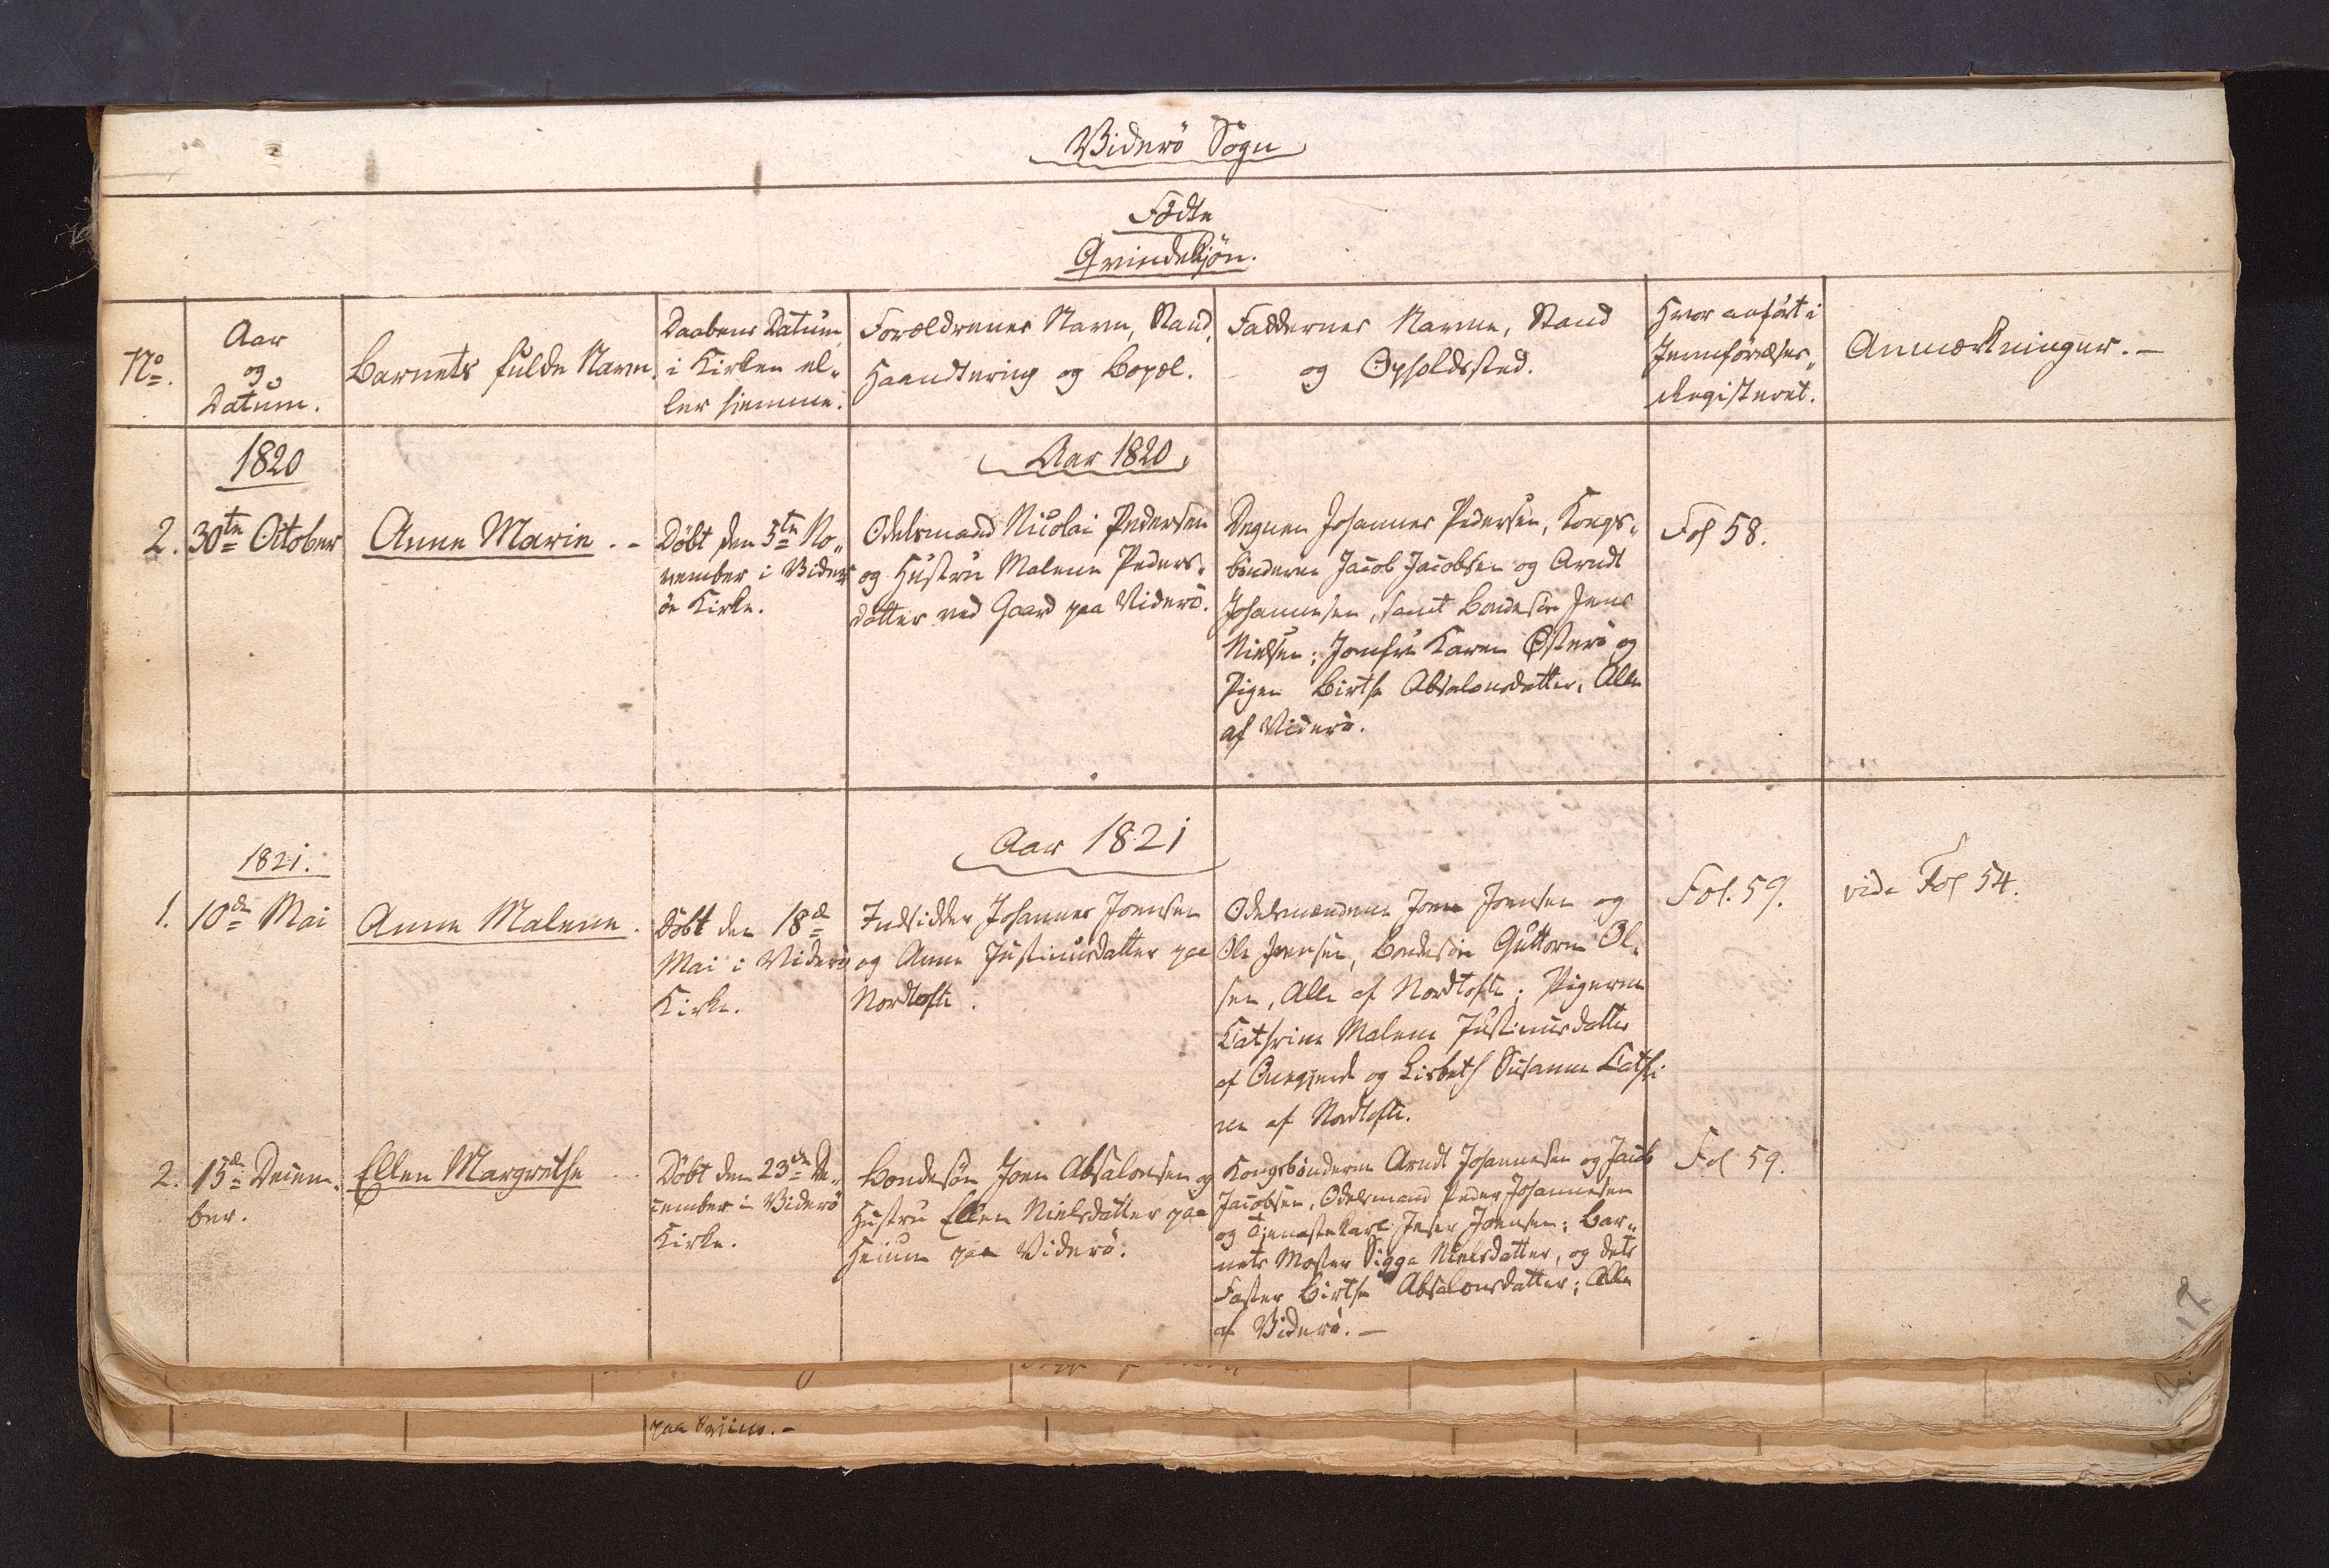 Viderö Sogn
Födte
Qvindekjön.
No.
Aar
og
Datum.
Barnets fulde Navn.
Daabens Datum
i Kirken el-
ler hiemme.
Forældrenes Navn, Stand,
Haandtering og Bopæl.
Faddernes Navne, Stand
og Opholdssted.
Hvor anført i
Jevnførelses-
Registeret.
Anmærkninger. -
1820
Aar 1820
2. 30te October
Anne Marie. -
Döbt den 5te No-
vember i Vider-
öe Kirke.
Odelsmand Nicolai Pedersen
og Hustru Malene Peders-
datter ved Gaard paa Viderö.
Degnen Johannes Pedersen, Kongs-
bönderne Jacob Jacobsen og Arndt
Johannesen, samt Bondesön Jens
Nielsen; Jomfru Karen Østerö og
Pigen Birthe Absalonsdatter, Alle
af Viderö.
Fol 58.
1821.
Aar 1821
1. 10de Mai
Anne Malene.
Döbt den 18de
Mai i Viderö
Kirke.
Indsidder Johannes Joensen
og Anne Justinusdatter paa
Nordtofte.
Odelsmændene Joen Joensen og
Ole Joensen, Bondesön Guttorm Ol-
sen, Alle af Nordtofte; Pigerne
Cathrine Malene Justinusdatter
af Qvegjerde og Lisbeth Susanne Cathri
ne af Nordtofte.
Fol. 59.
vide Fol 54.
2. 15de Decem-
ber.
Ellen Margrethe
Döbt den 23de De-
cember i Viderö
Kirke.
Bondesön Joen Absalonsen og
Hustru Ellen Nielsdatter paa
Heium paa Viderö.
Kongsbönderne Arndt Johannesen og Jacob
Jacobsen, Odelsmand Peder Johannesen
og Tjenestekarl Joen Joensen; Bar-
nets Moster Sigga Nielsdatter, og dets
Faster Birthe Absalonsdatter; Alle
af Viderö. -
Fol 59.